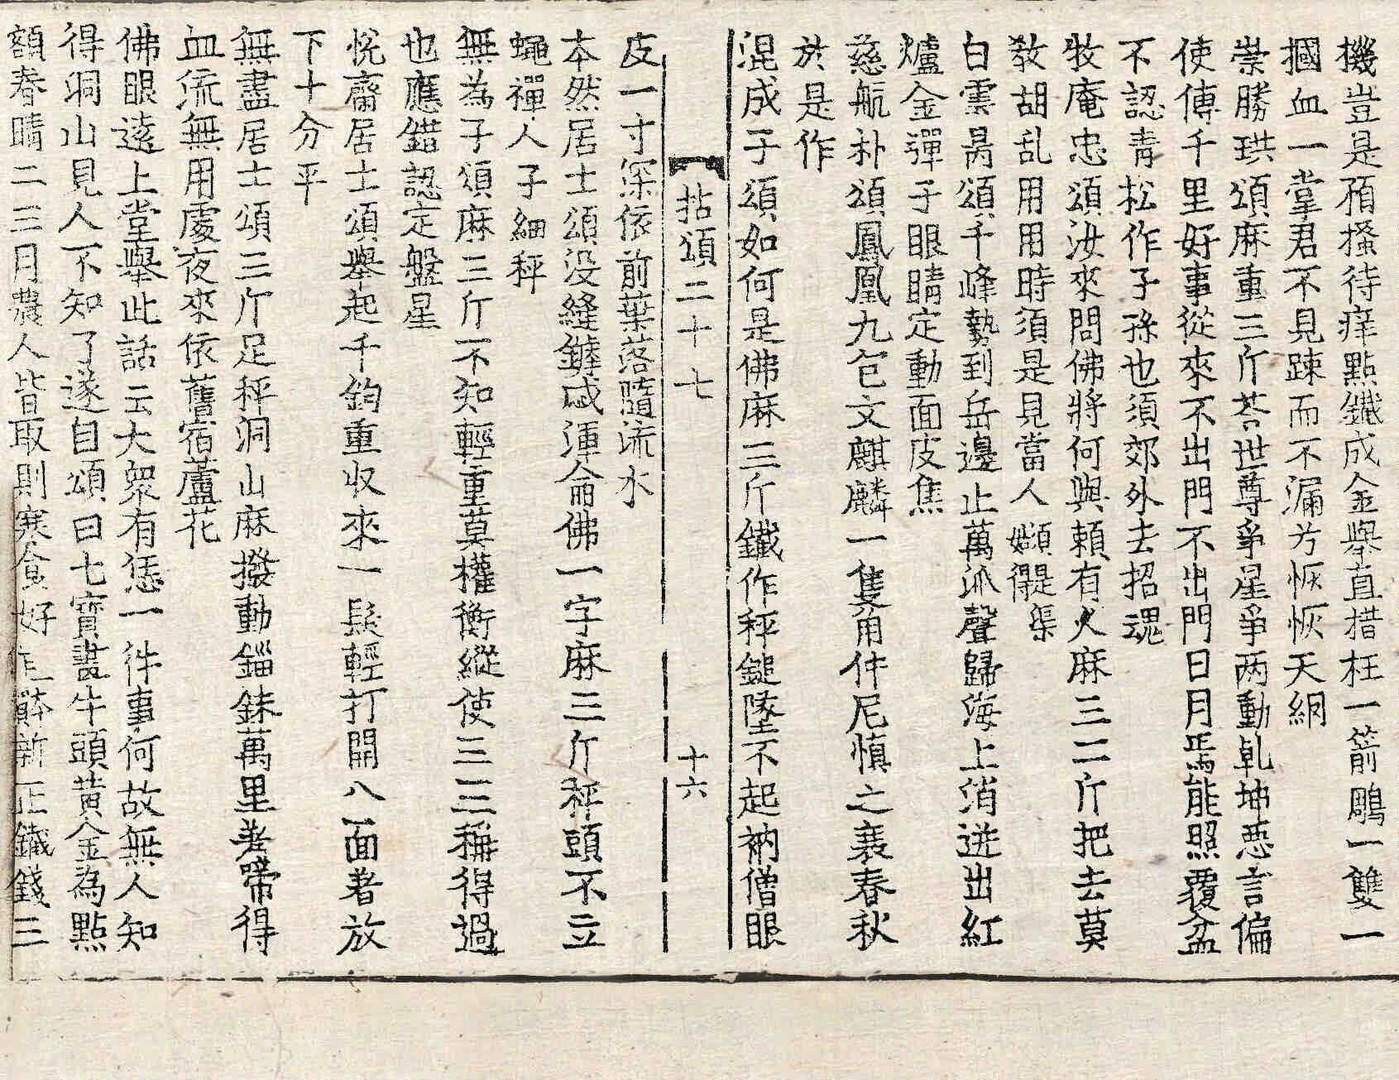 機豈是預搔待痒點鐵成金舉直措枉一箭鵰一雙一
摑血一掌君不見踈而不漏兮恢恢天網
崇勝珙頌麻重三斤荅世尊爭星爭两動乹坤惡言偏
使傳千里好事從來不出門不出門日月焉能照覆盆
不認青松作子孫也須郊外去招魂
牧庵忠頌汝來問佛將何與賴有火麻三二斤把去莫
教胡乱用用時須是見當人 嬾得是渠
白雲昺頌千峰勢到岳邊止萬派聲歸海上消迸出紅
爐金彈子眼睛定動面皮焦
慈航朴頌鳳凰九包文麒麟一隻角仲尼慎之褒春秋
於是作
混成子頌如何是佛麻三斤鐵作秤鎚墜不起衲僧眼
拈頌二十七 十六
皮一寸深依前葉落隨流水
本然居士頌没縫鏬成渾侖佛一字麻三斤秤頭不立
蠅禪人子細秤
無為子頌麻三斤不知輕重莫權衡縱使三三稱得過
也應錯認定盤星
悅齋居士頌舉起千鈞重收來一髮輕打開八面著放
下十分平
無盡居士頌三斤足秤洞山麻撥動錙銖萬里差啼得
血流無用處夜來依舊宿蘆花
佛眼遠上堂舉此話云大衆有恁一件事何故無人知
得洞山見人不知了遂自頌曰七寶畫牛頭黄金為點
額春晴二三月農人皆取則寒食好新正鐵錢三